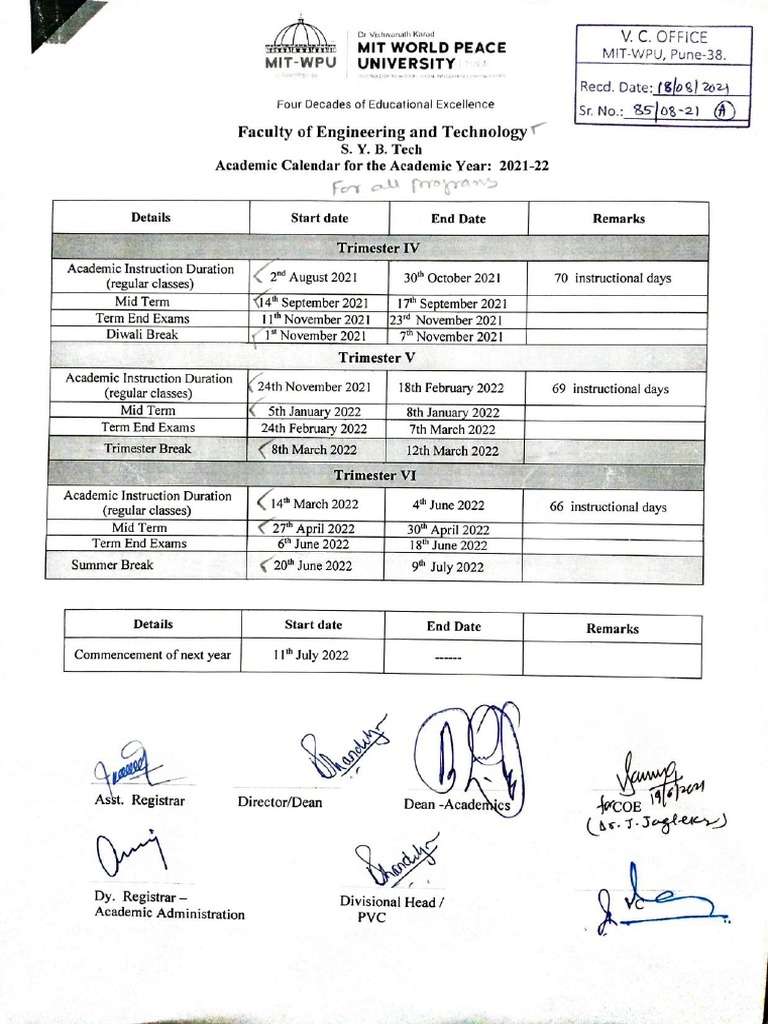 Dr. Vishwanath Karad
MIT-WPU
MIT WORLD PEACE
UNIVERSITY
Four Decades of Educational Excellence
V. C. OFFICE
MIT-WPU, Pune-38.
Recd. Date: 18/08/2021
Sr. No.: 85/08-21 A
Faculty of Engineering and Technology
S. Y. B. Tech
Academic Calendar for the Academic Year: 2021-22
For all programs
Details Start date End Date Remarks
Trimester IV
Academic Instruction Duration (regular classes) 2nd August 2021 30th October 2021 70 instructional days
Mid Term 14th September 2021 17th September 2021
Term End Exams 11th November 2021 23rd November 2021
Diwali Break 1st November 2021 7th November 2021
Trimester V
Academic Instruction Duration (regular classes) 24th November 2021 18th February 2022 69 instructional days
Mid Term 5th January 2022 8th January 2022
Term End Exams 24th February 2022 7th March 2022
Trimester Break 8th March 2022 12th March 2022
Trimester VI
Academic Instruction Duration (regular classes) 14th March 2022 4th June 2022 66 instructional days
Mid Term 27th April 2022 30th April 2022
Term End Exams 6th June 2022 18th June 2022
Summer Break 20th June 2022 9th July 2022
Details Start date End Date Remarks
Commencement of next year 11th July 2022 ------
Asst. Registrar Director/Dean Dean -Academics for COE
Dy. Registrar – Academic Administration
Divisional Head / PVC
VC